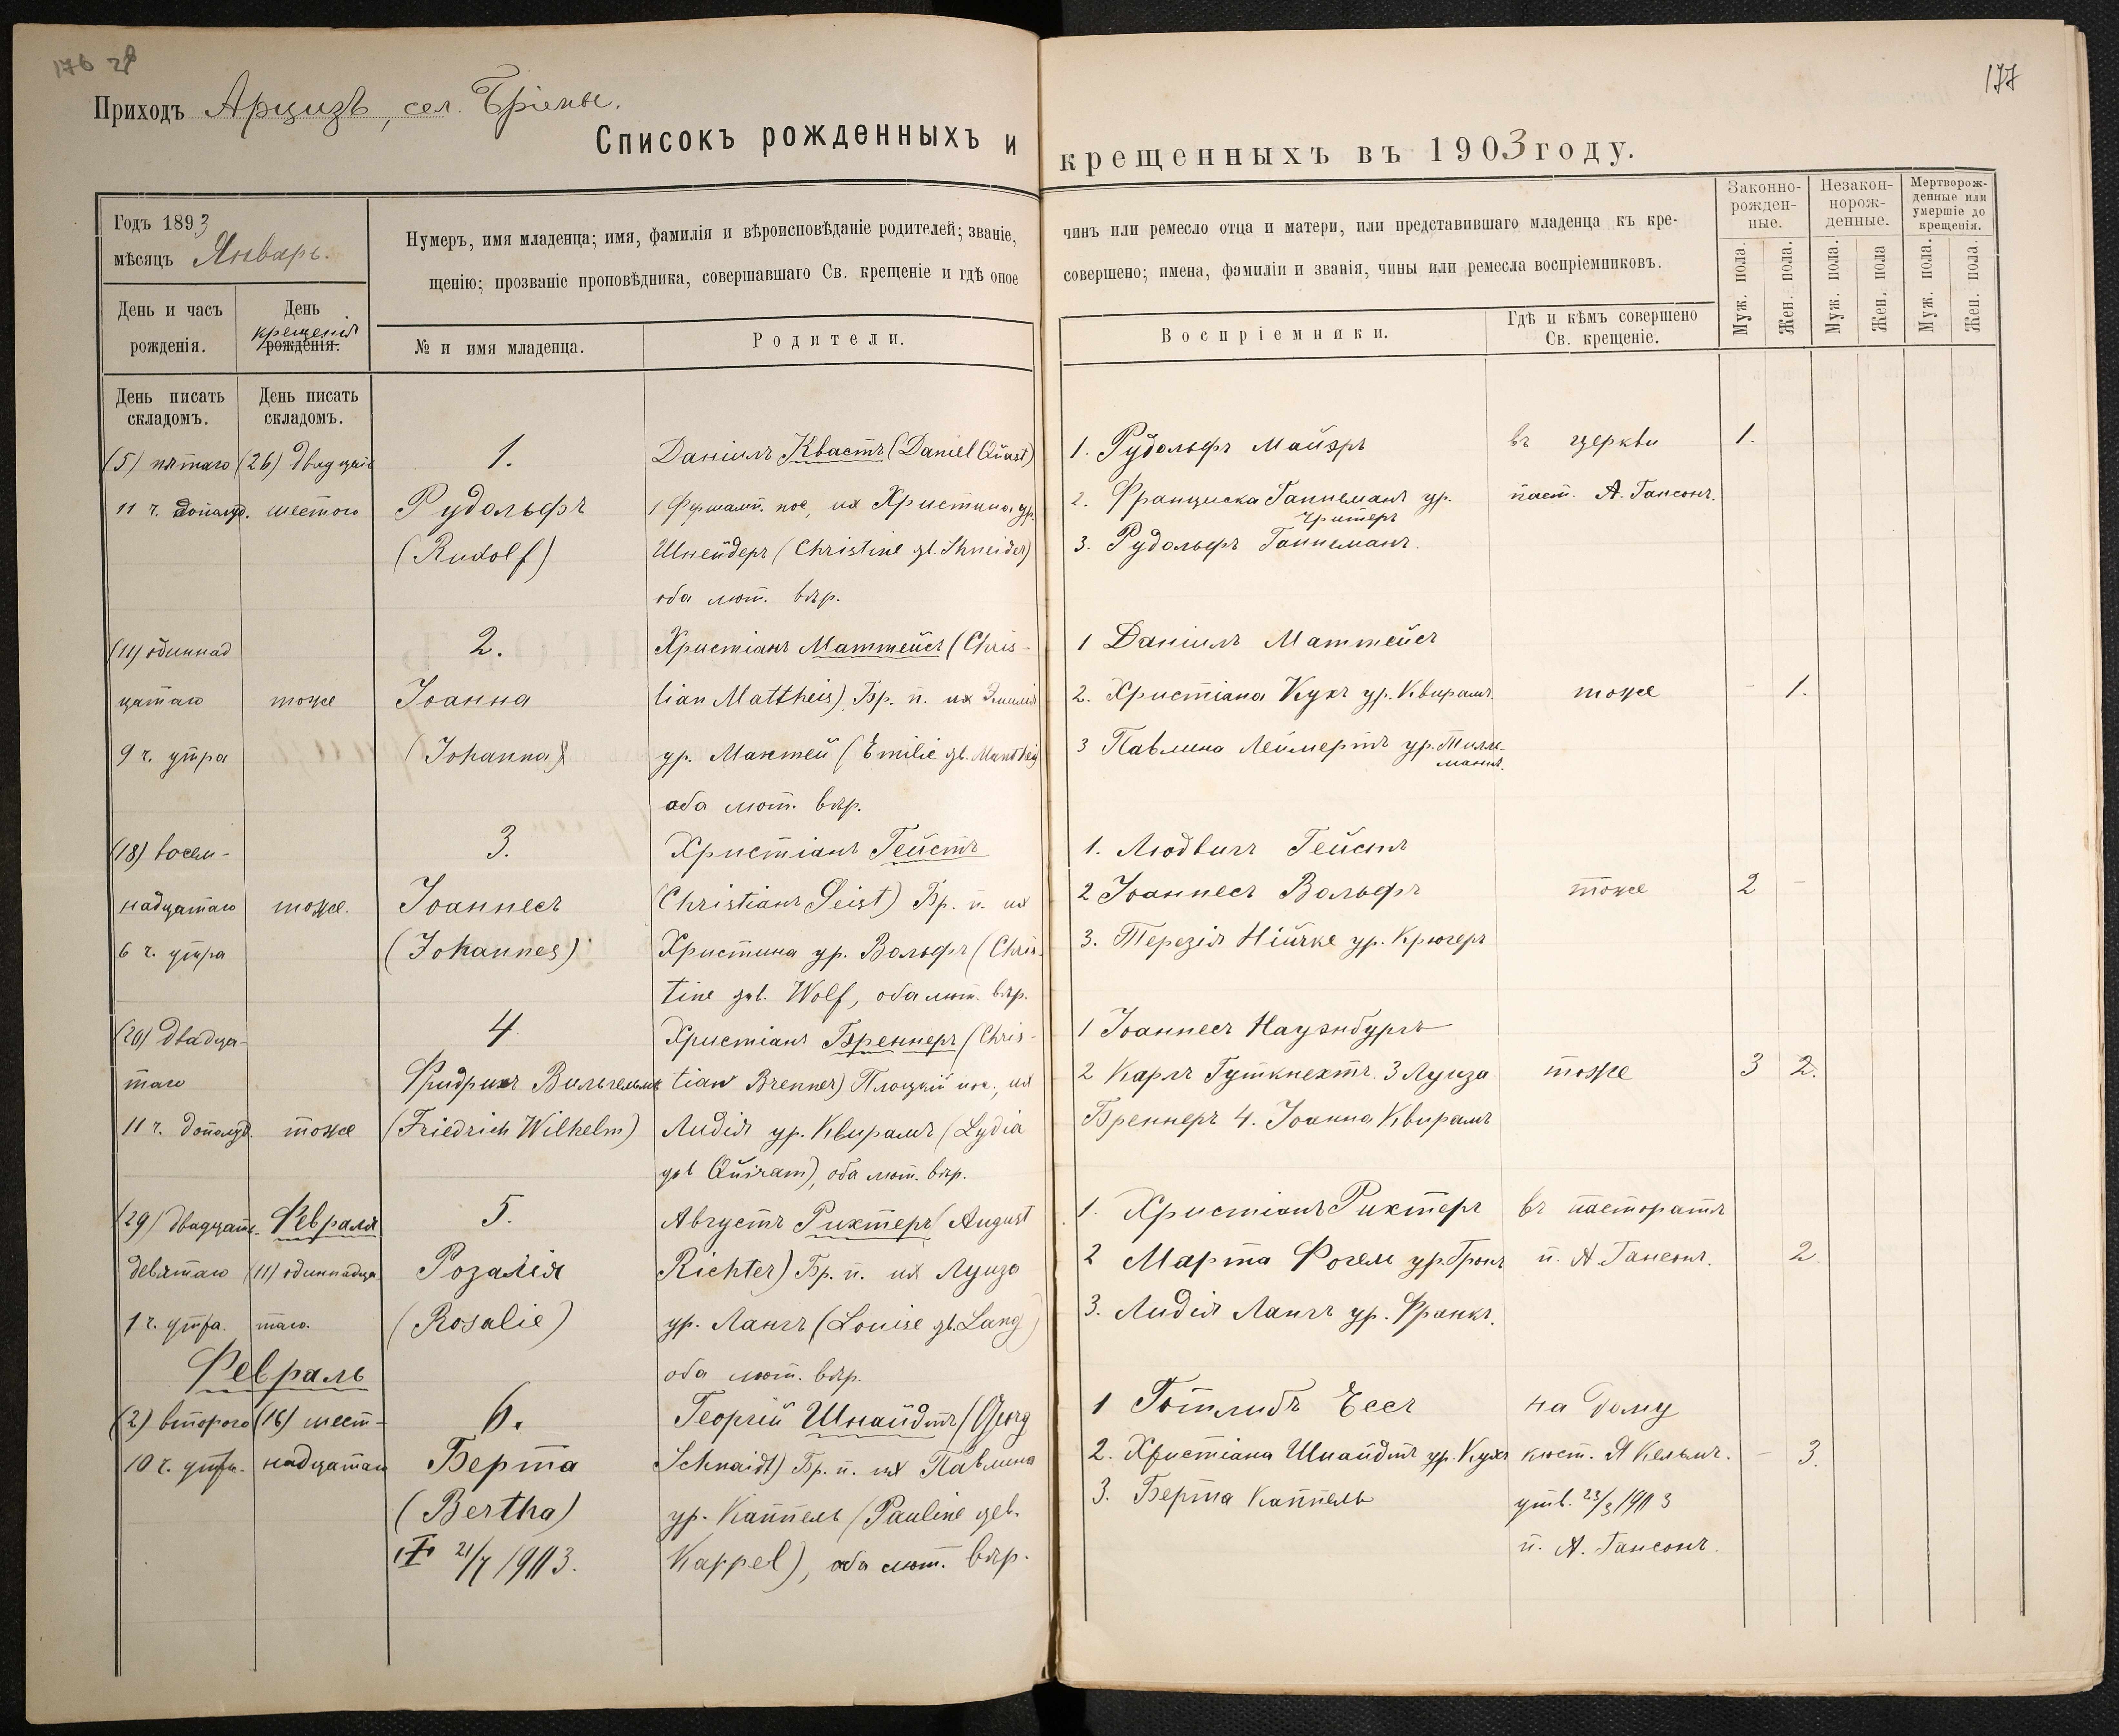 176 28
177
Приходъ Арцизъ, сел. Бріены.
Списокъ рожденныхъ и крещенныхъ въ 1903 году.
Годъ 1893
мѣсяцъ Январь.
Нумеръ, имя младенца; имя, фамилія и вѣроисповѣданіе родителей; званіе, чинъ или ремесло отца и матери, или представившаго младенца къ кре-
щенію; прозваніе проповѣдника, совершавшаго Св. крещеніе и гдѣ оное совершено; имена, фамиліи и званія, чины или ремесла воспріемниковъ.
Законно-
рожден-
ные.
Незакон-
норож-
денные.
Мертворож-
денные или
умершіе до
крещенія.
Муж. пола.
Жен. пола.
Муж. пола.
Жен. пола
Муж. пола.
Жен. пола.
День и часъ
рожденія.
День
крещенія
рожденія.
№ и имя младенца.
Родители.
Воспріемники.
Гдѣ и кѣмъ совершено
Св. крещеніе.
День писать
складомъ.
День писать
складомъ.
(5) пятаго
11 ч. дополуд.
(26) двадцать
шестого
1.
Рудольфъ
(Rudolf)
Даніилъ Квастъ (Daniel Quast)
1 Фершамп. пос, их Христина ур.
Шнейдеръ (Christine gb. Shneider)
оба лют. вѣр.
1. Рудольфъ Майэръ
2. Франциска Ганнеманъ ур.
3. Рудольфъ Ганнеманъ.
въ церкви
паст. А. Гансонъ.
1.
(11) одиннад
цатаго
9 ч. утра
тоже
2.
Іоанна
(Johanna)
Христіанъ Маттейсъ (Chris-
tian Mattheis) Бр. п. их Эмилія
ур. Мантей (Emilie gb. Manthey
оба лют. вѣр.
1 Даніилъ Маттейсъ
2. Христіана Кухъ ур. Квирамъ.
3 Павлина Леммертъ ур. Тилле-
манъ.
тоже
- 1.
(18) восем-
надцатаго
6 ч. утра
тоже.
3.
Іоаннесъ
(Johannes)
Христіанъ Гейстъ
(Christian Geist) Бр. п. их
Христина ур. Вольфъ (Chris-
tine geb. Wolf, оба лют. вѣр.
1. Людвигъ Гейстъ
2 Іоаннесъ Вольфъ
3. Терезія Ничке ур. Крюгеръ
тоже
2 -
(20) двадца-
таго
11 ч. дополуд.
тоже
4
Фридрихъ Вильгельмъ
(Friedrich Wilhelm)
Христіанъ Бреннеръ (Chris-
tian Brenner) Плоцкій пос., их
Лидія ур. Квирамъ (Lydia
geb Quiram), оба лют. вѣр.
1 Іоаннесъ Науэнбургъ
2 Карлъ Гуткнехтъ. 3 Луиза
Бреннеръ 4. Іоанна Квирамъ
тоже
3 2.
(29) двадцать
девятаго
1 ч. утра.
Февраля
(11) одиннадца
таго.
5.
Розалія
(Rosalie)
Августъ Рихтеръ (August
Richter) Бр. п. их Луиза
ур. Лангъ (Louise gb. Lang)
оба лют. вѣр.
1. Христіанъ Рихтеръ
2 Марта Фогель ур. Гронъ
3. Лидія Лангъ ур. Франкъ.
въ пасторатѣ
п. А. Гансонъ.
2.
Февраль
(2) второго
10 ч. утра.
(16) шест-
надцатаго
6.
Берта
(Bertha)
21/7 1903.
Георгій Шнайдтъ (Georg
Schnaidt) Бр. п. их Павлина
ур. Каппель (Pauline geb.
Kappel), оба лют. вѣр.
1 Готлибъ Гессъ
2. Христіана Шнайдтъ ур. Кухъ
3. Берта Каппель
на дому
кюст. Я Кельмъ.
утв. 23/3 1903
п. А. Гансонъ.
- 3.